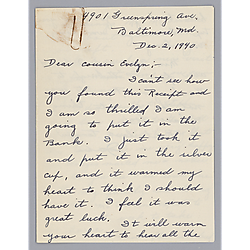 4901 Greenspring Ave.
Baltimore, Md.
Dec. 2, 1940
Dear cousin Evelyn;-
I can't see how
you found this Receipt and
I am so thrilled I am
going to put it in the
Bank. I just took it
and put it in the silver
cup, and it warmed my
heart to think I should
have it. I feel it was
great luck.
It will warm
your heart to hear all the